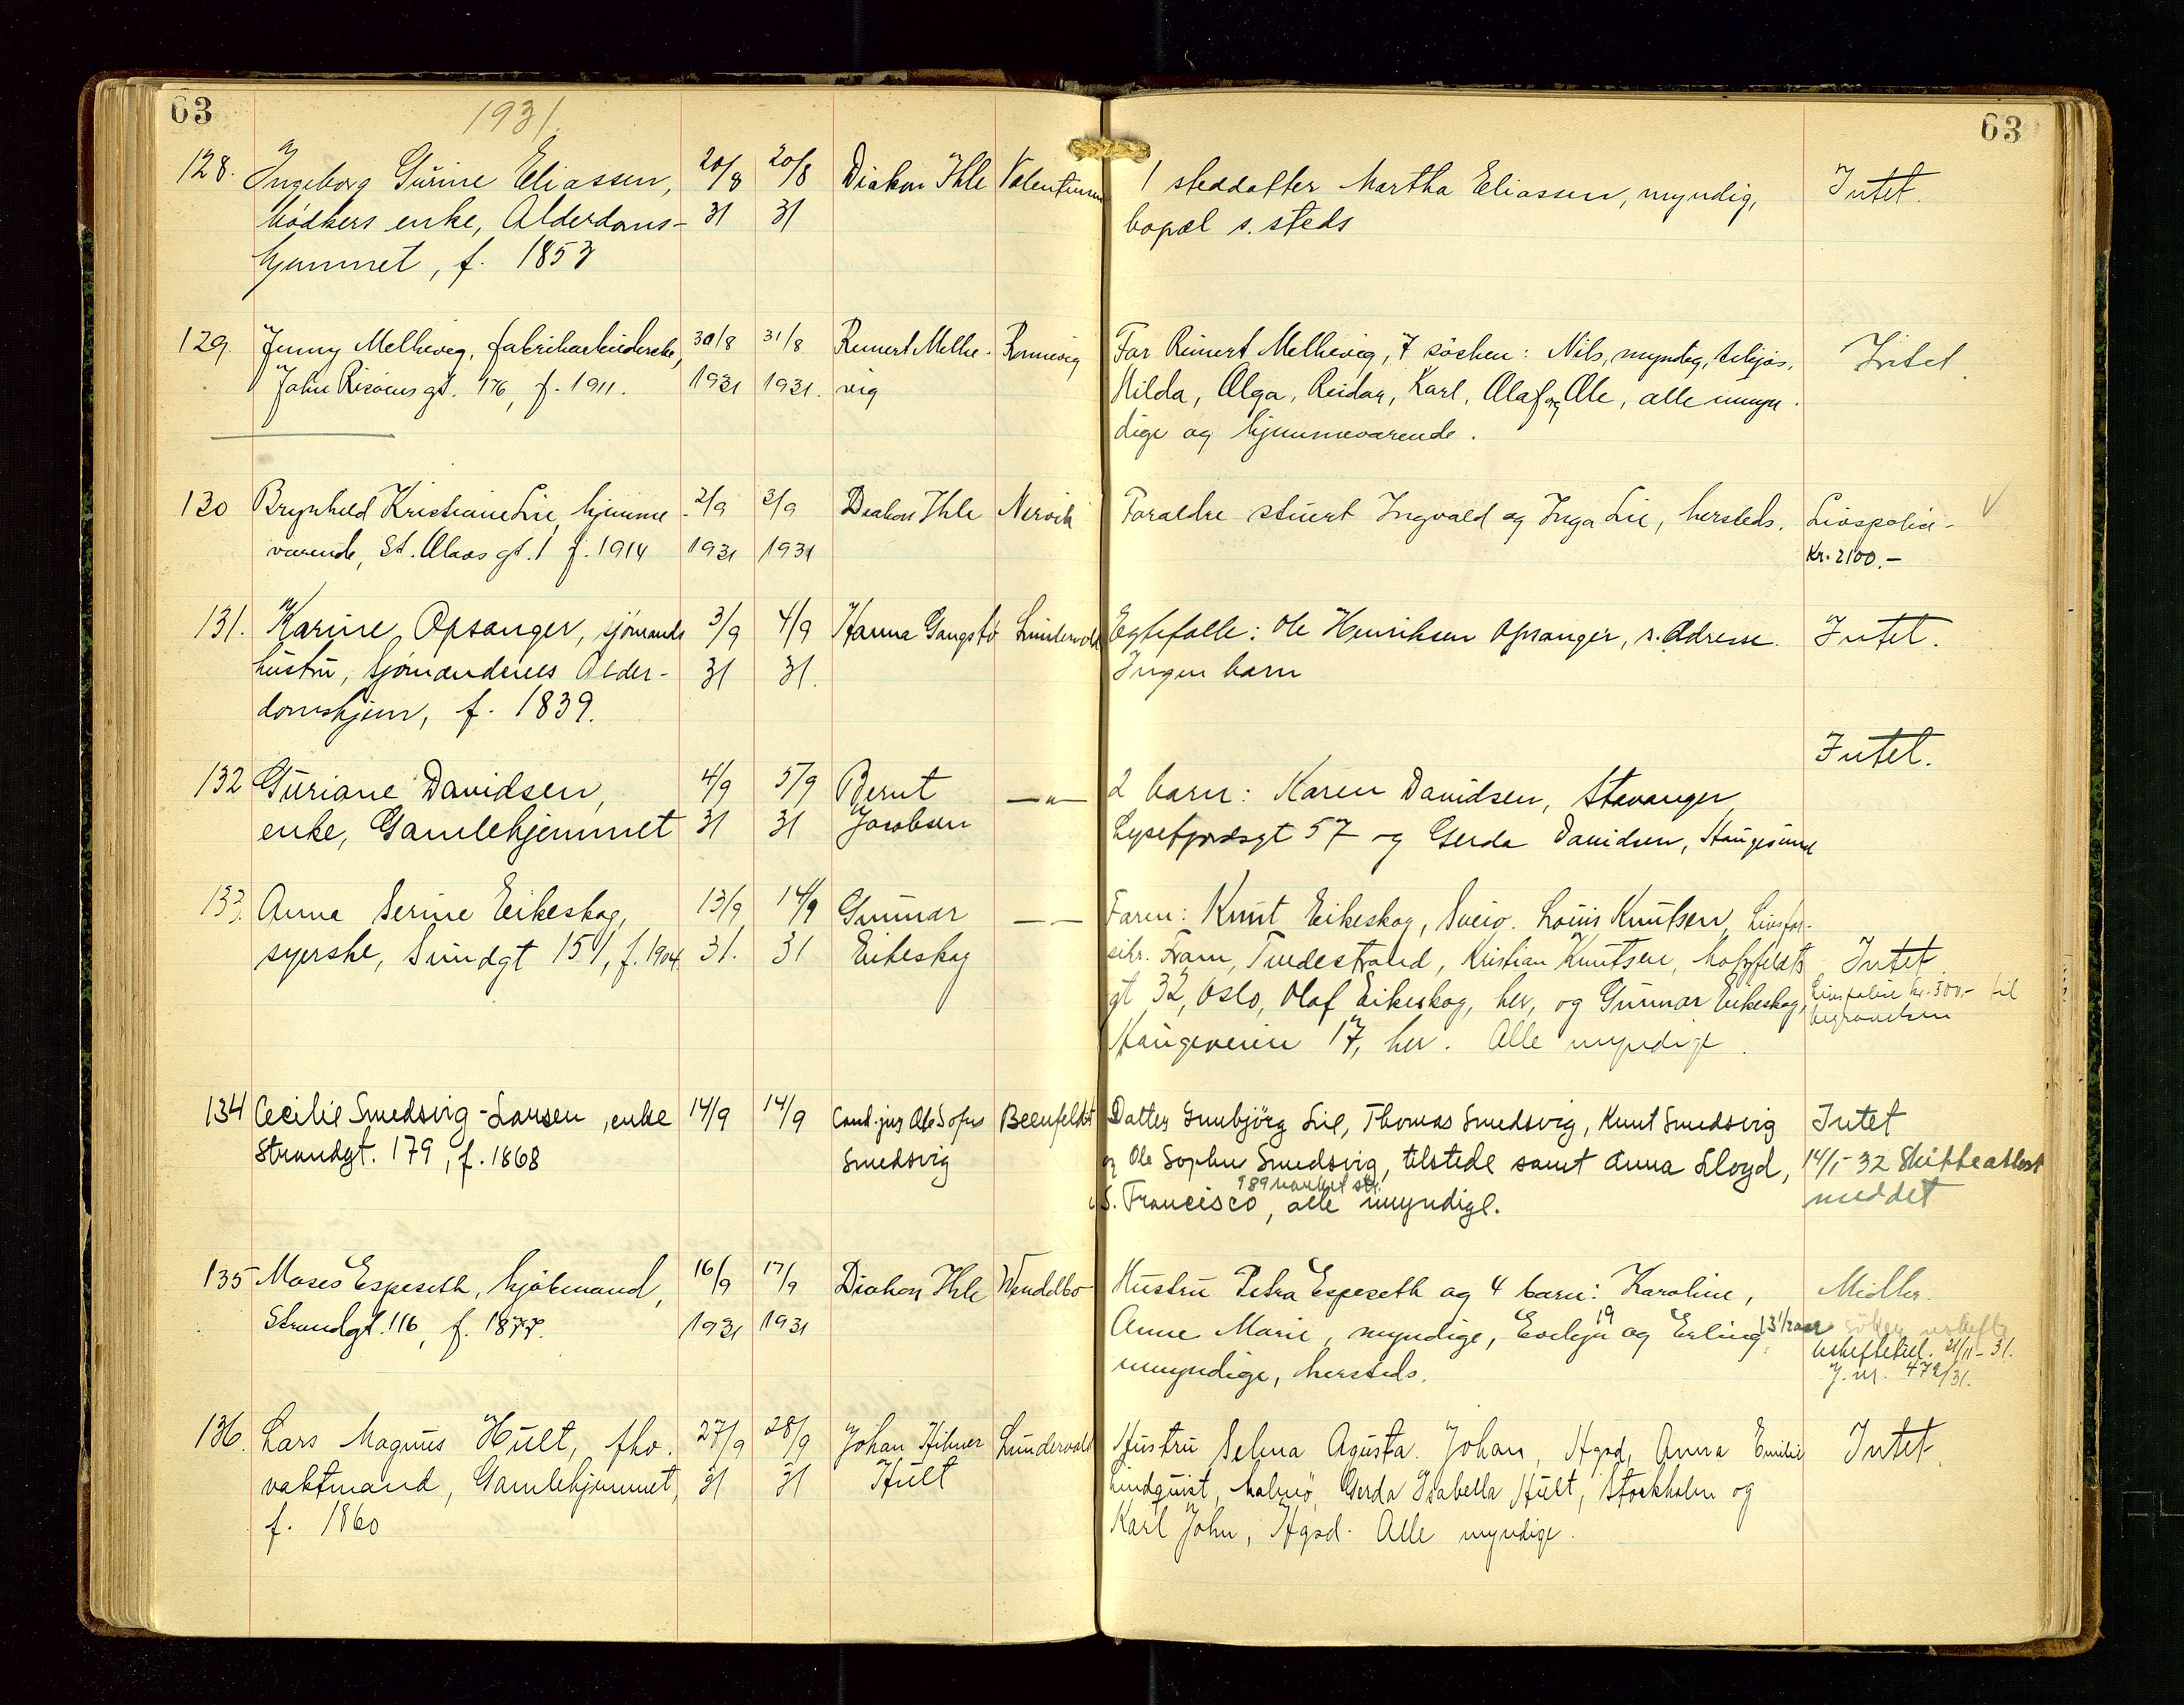 63
63
1931
128. Ingeborg Gurine Eliassen, 20/8 20/8 Diakon Ihle Valentinsen 1 steddatter Martha Eliassen, myndig, Intet.
bødkers enke, Alderdoms- 31 31 bopæl s. steds
hjemmet, f. 1853
129. Jenny Melhevig, fabrikarbeiderske, 30/8 31/8 Reinert Melhe- Rønnevig Far Reinert Melhevig, 7 søsken: Nils, myndig, tilsjøs, Intet.
John Risøens gt. 176, f. 1911. 1931 1931. vig Hilda, Olga, Reidar, Karl, Olaf og Ole, alle umyn-
dige og hjemmeværende.
130 Brynhild Kristiane Lie, hjemme- 2/9 3/9 Diakon Ihle Nervik Foraldre stuert Ingvald og Inga Lie, hersteds. Livspolice- V
værende, St. Olavs gt. 1 f. 1914 1931 1931 Kr. 2100.-
131. Karine Opsanger, sjømands 3/9 4/9 Hanna Gangstø Lundervold Egtefælle: Ole Henriksen Opsanger, s. Adresse. Intet.
hustru, Sjømændenes Alder- 31 31. Ingen barn
domshjem, f. 1839.
Intet.
132 Guriane Davidsen, 4/9 5/9 Bernt —"— 2 barn: Karen Davidsen, Stavanger,
enke, Gamlehjemmet 31 31 Jacobsen Lysefjordsgt 57 og Gerda Davidsen, Haugesund
133. Anna Serine Eikeskog, 13/9 14/9 Gunnar — — Faren: Knut Eikeskog, Sveio. Louis Knutsen, Livsfor-
syerske, Sundgt 151, f. 1904. 31. 31 Eikeskog sikr. Fram, Tvedestrand, Kristian Knutsen, Intet.
gt 32, Oslo, Olaf Eikeskog, her, og Gunnar Eikeskog, Livspolice kr. 500,- til
Haugeveien 17, her. Alle myndige. begravelsen
134 Cecilie Smedsvig-Larsen, enke 14/9 14/9 Cand. jur Ole Sofus Beenfeldt Datter Gunbjørg Lie, Thomas Smedsvig, Knut Smedsvig Intet
Strandgt. 179, f. 1868 Smedsvig og Ole Sophus Smedsvig, tilstede samt Anna Lloyd, 14/1-32 Skifteattest
989 Market str.
i S. Francisco, alle myndige. meddet
135 Moses Espeseth, kjøbmand, 16/9 17/9 Diakon Ihle Wendelbo Hustru Petra Espeseth og 4 barn: Karoline, Midler.
Strandgt. 116, f. 1877. 1931 1931 Anne Marie, myndige, Evelyn 19 og Erling 13 1/2 aar søker uskifte
umyndige, hersteds. Uskiftetill. 21/11-31.
J. nr. 472/31.
136. Lars Magnus Hult, fhv. 27/9 28/9 Johan Hilmer Lundervold Hustru Selma Agusta. Johan, Hgsd, Anna Emilie Intet.
vaktmand, Gamlehjemmet, 31 31 Hult Lindquist, Malmø, Gerda Isabella Hult, Stockholm og
f. 1860 Karl John, Hgsd. Alle myndige.